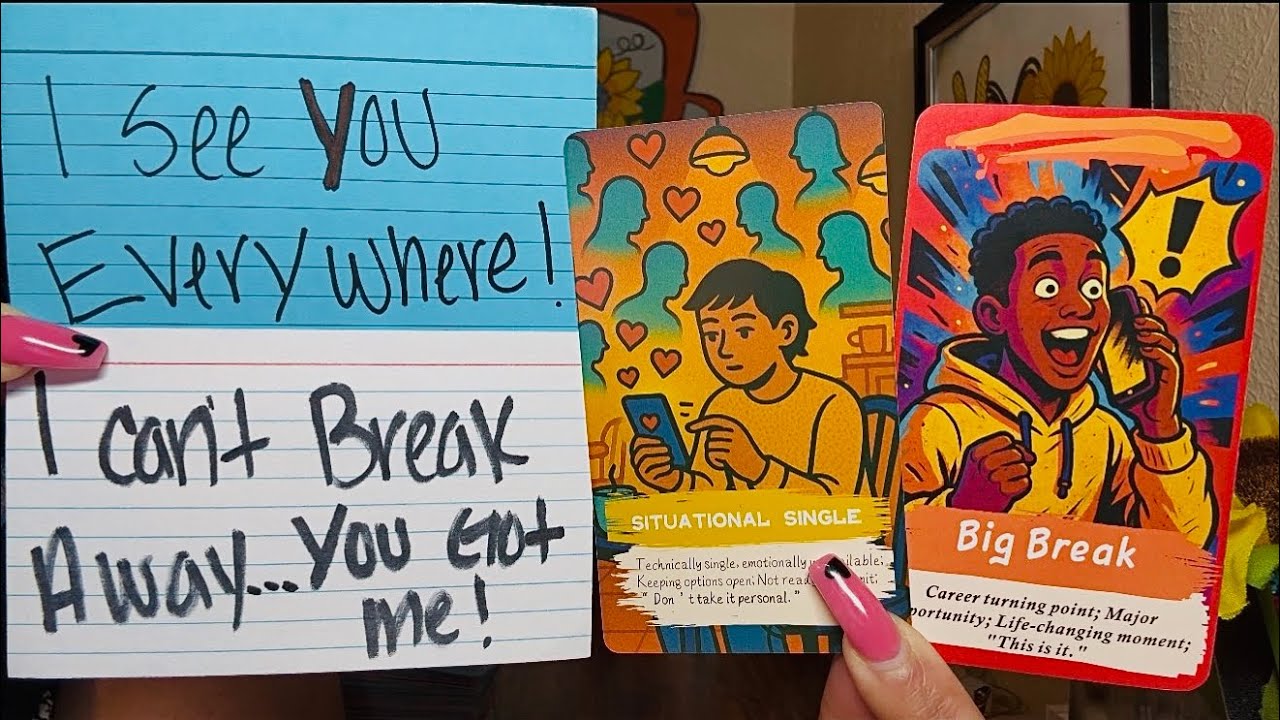 I See You
Everywhere!
I can't Break
Away... You Got
me!
SITUATIONAL SINGLE
Technically single, emotionally
Keeping options open; Not
"Don't take it personal."
!
Big Break
Career turning point; Major
portunity; Life-changing moment;
"This is it."